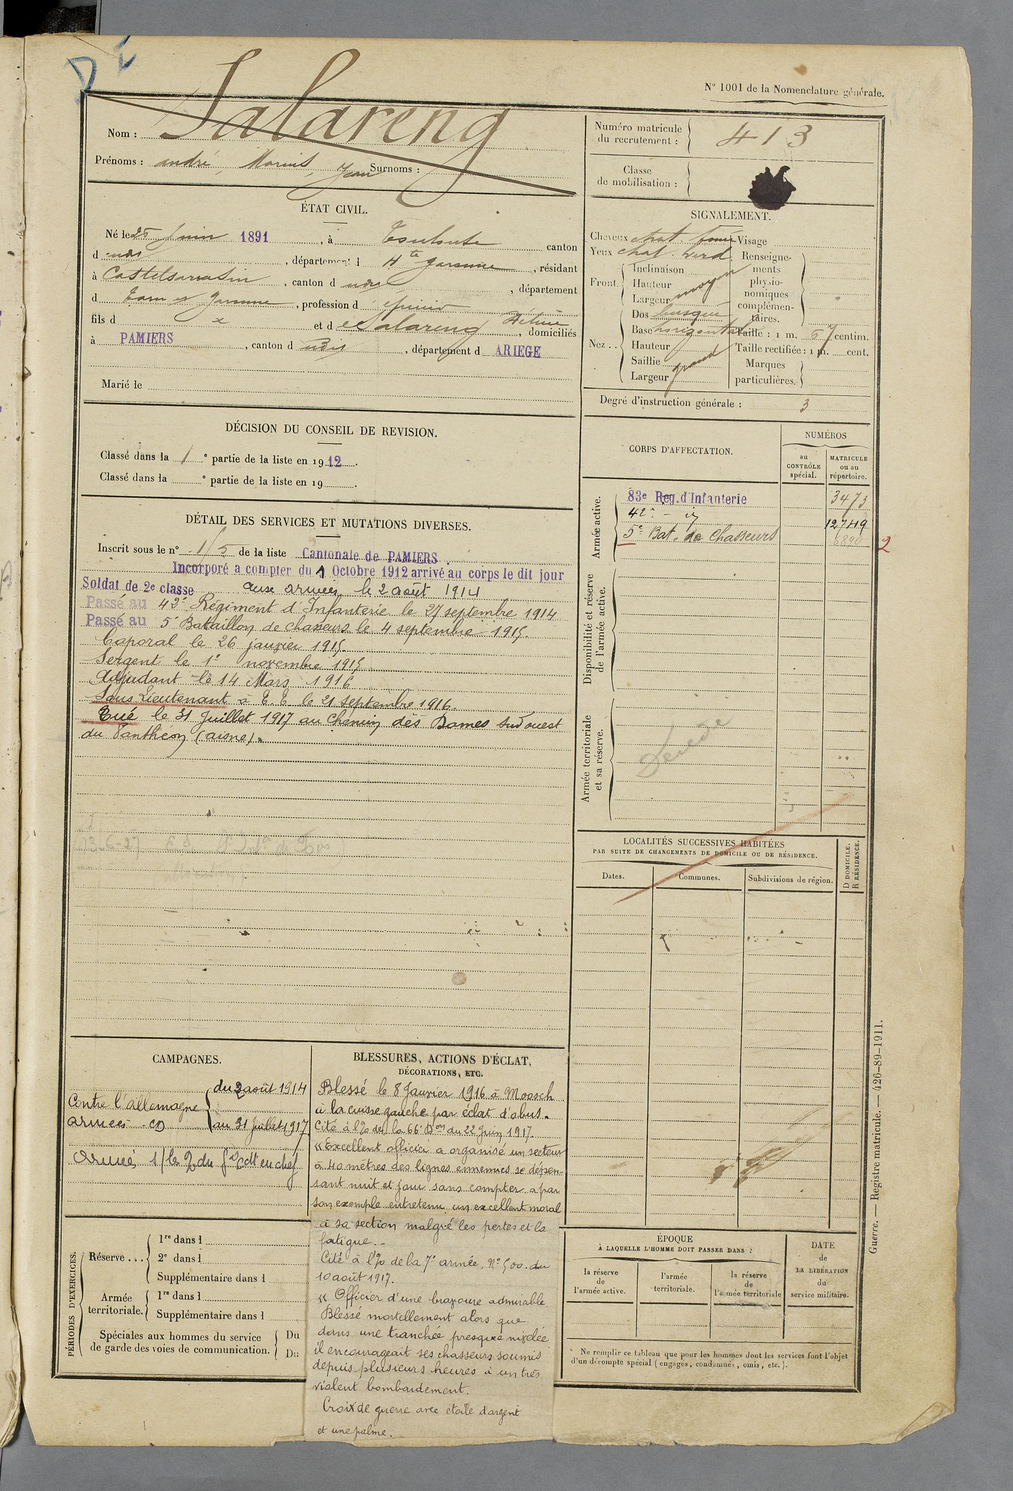 N° 1001 de la Nomenclature générale.
Nom : Salareng
Prénoms : André, Marius, Jean Surnoms :
Numéro matricule du recrutement : 413
Classe de mobilisation :
ÉTAT CIVIL.
Né le 25 Juin 1891, à Toulouse canton
d udis, département d Hte Garonne, résidant
à Castelsarrasin, canton d udis, département
d Tarn et Garonne, profession d
fils d x et d e Salareng domiciliés
à PAMIERS, canton d udis, département d ARIEGE
Marié le
SIGNALEMENT.
Cheveux chat. foncé Visage
Yeux chat. verd.
Renseignements physionomiques complémentaires.
Front. Inclinaison
Hauteur moyen
Largeur
Nez .. Dos busqué
Base horizontale
Hauteur grand
Saillie
Largeur
Taille : 1 m. 67 centim.
Taille rectifiée : 1 m. cent.
Marques particulières.
Degré d'instruction générale : 3
DÉCISION DU CONSEIL DE REVISION.
Classé dans la 1e partie de la liste en 1912.
Classé dans la e partie de la liste en 19 .
DÉTAIL DES SERVICES ET MUTATIONS DIVERSES.
Inscrit sous le n° 15 de la liste Cantonale de PAMIERS
Incorporé a compter du 1 Octobre 1912 arrivé au corps le dit jour
Soldat de 2e classe aux armées le 2 août 1914
Passé au 42e Régiment d'Infanterie le 27 septembre 1914
Passé au 5e Bataillon de chasseurs le 4 septembre 1915.
Caporal le 26 janvier 1915.
Sergent le 1e novembre 1915
Adjudant le 14 Mars 1916
Sous Lieutenant à T. T. le 21 septembre 1916.
Tué le 31 Juillet 1917 au Chemin des Dames sud ouest
du Panthéon (Aisne).
CORPS D'AFFECTATION.
NUMÉROS
au CONTRÔLE spécial.
MATRICULE ou au répertoire.
Armée active.
83e Reg. d'Infanterie 3473
42e - id 12749
5e Bat. de Chasseurs 2
Disponibilité et réserve de l'armée active.
Armée territoriale et sa réserve.
Décédé
LOCALITÉS SUCCESSIVES HABITÉES
PAR SUITE DE CHANGEMENTS DE DOMICILE OU DE RÉSIDENCE.
Dates.
Communes.
Subdivisions de région.
D DOMICILE.
R RÉSIDENCE.
CAMPAGNES.
Contre l'allemagne du 2 août 1914
au 31 juillet 1917
BLESSURES, ACTIONS D'ÉCLAT,
DÉCORATIONS, ETC.
Blessé le 8 Janvier 1916 à Moosch
à la cuisse gauche par éclat d'obus.
Cité à l'o de la 66e Don du 22 Juin 1917.
« Excellent officier a organisé un secteur
à 40 mètres des lignes ennemies se dépen-
sant nuit et jour sans compter a par
son exemple entretenu un excellent moral
à sa section malgré les pertes et la
fatigue. -
Cité à l'o de la 7e armée. N° 500. du
10 août 1917.
« Officier d'une bravoure admirable
Blessé mortellement alors que
dans une tranchée presque nivelée
il encourageait ses chasseurs soumis
depuis plusieurs heures à un très
violent bombardement.
Croix de guerre avec étoile d'argent
et une palme.
PÉRIODES D'EXERCICES.
Réserve ...
1re dans l
2e dans l
Supplémentaire dans l
Armée territoriale.
1re dans l
Supplémentaire dans l
Spéciales aux hommes du service
de garde des voies de communication.
Du
Du
ÉPOQUE
À LAQUELLE L'HOMME DOIT PASSER DANS :
la réserve de l'armée active.
l'armée territoriale.
la réserve de l'armée territoriale
DATE de LA LIBÉRATION du service militaire.
Ne remplir ce tableau que pour les hommes dont les services font l'objet
d'un décompte spécial (engagés, condamnés, omis, etc.).
Guerre. — Registre matricule. — 426-89-1911.